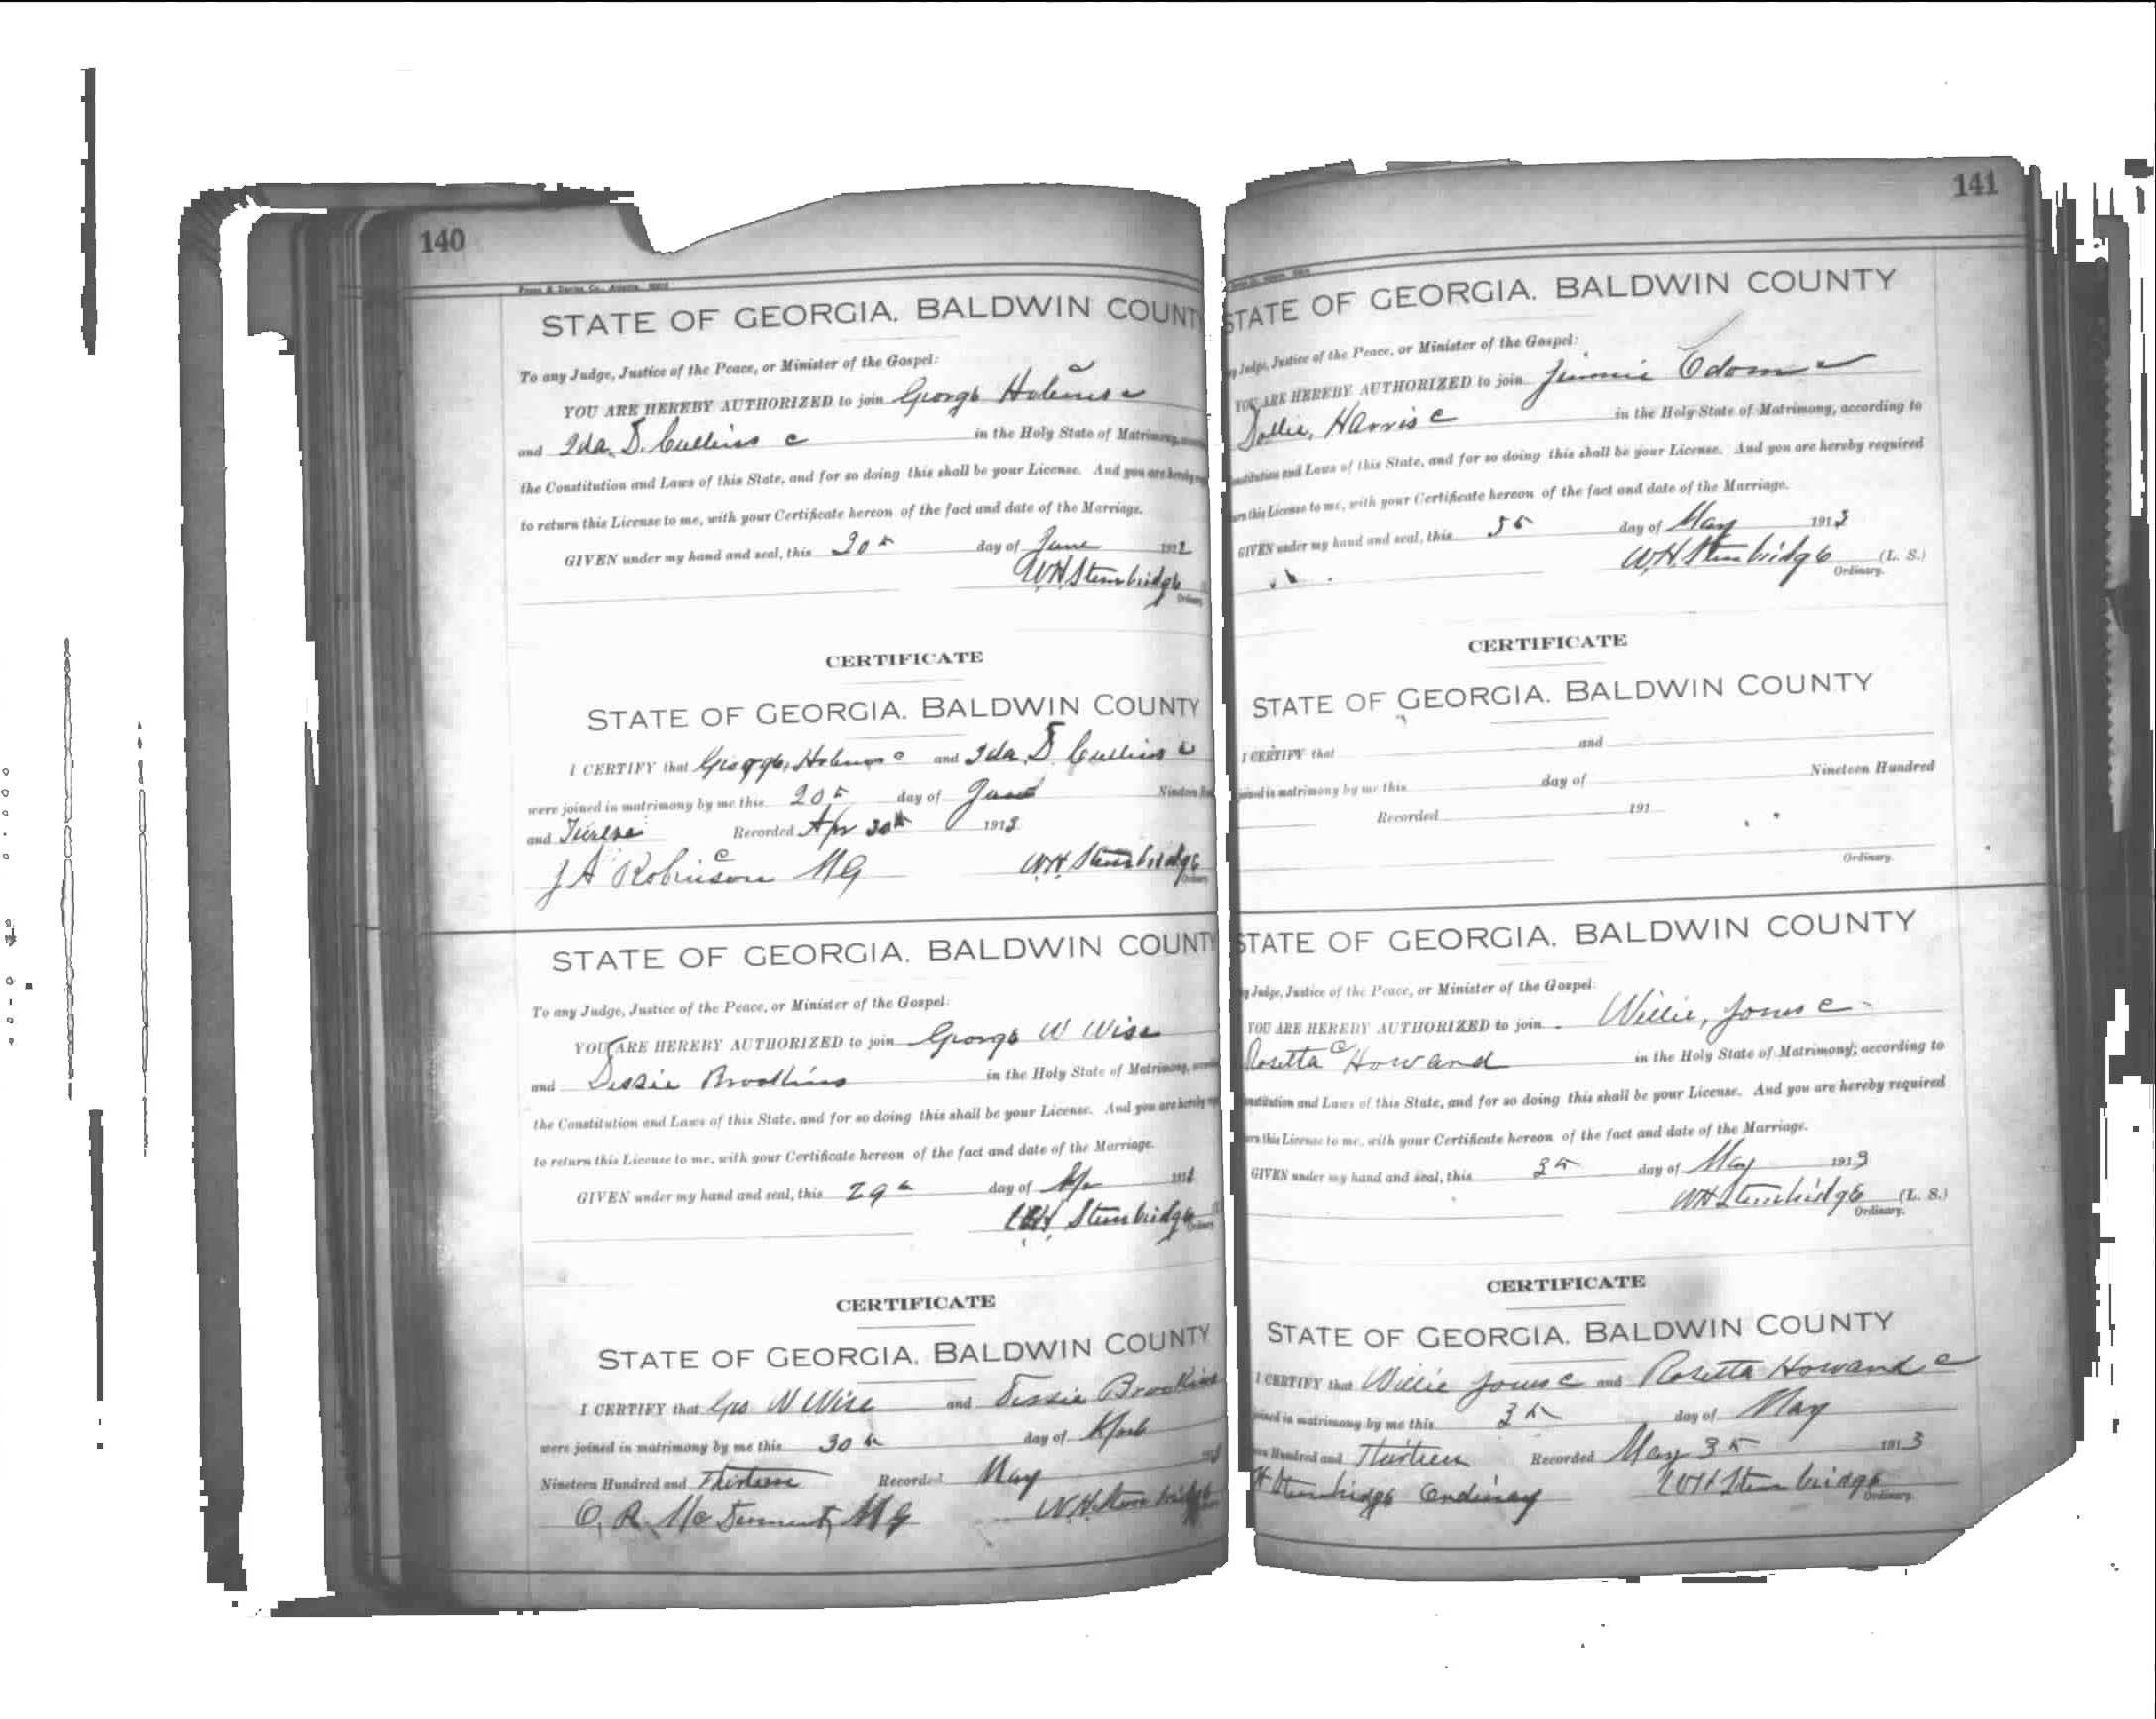 140
STATE OF GEORGIA. BALDWIN COUNT
To any Judge, Justice of the Peace, or Minister of the Gospel:
YOU ARE HEREBY AUTHORIZED to join George Holmes c
and Ida D. Cullins c in the Holy State of Matrimony,
the Constitution and Laws of this State, and for so doing this shall be your License. And you are hereby
to return this License to me, with your Certificate hereon of the fact and date of the Marriage.
GIVEN under my hand and seal, this 20th day of June 1912
W.H. Stembridge
Ordinary
CERTIFICATE
STATE OF GEORGIA. BALDWIN COUNTY
I CERTIFY that George Holmes c and Ida D. Cullins c
were joined in matrimony by me this 20th day of June Nineteen
and Twelve Recorded Apr 30th 1913
J A Robinson c MG W.H. Stembridge
STATE OF GEORGIA. BALDWIN COUNTY
To any Judge, Justice of the Peace, or Minister of the Gospel:
YOU ARE HEREBY AUTHORIZED to join George W Wise
and Dessie Brookins in the Holy State of Matrimony,
the Constitution and Laws of this State, and for so doing this shall be your License. And you are hereby
to return this License to me, with your Certificate hereon of the fact and date of the Marriage.
GIVEN under my hand and seal, this 29th day of Apr 191
W.H. Stembridge
Ordinary
CERTIFICATE
STATE OF GEORGIA. BALDWIN COUNTY
I CERTIFY that Geo W Wise and Dessie Brookins
were joined in matrimony by me this 30th day of April
Nineteen Hundred and Thirteen Recorded May
O. R. McDerment, MG W.H. Stembridge
141
STATE OF GEORGIA. BALDWIN COUNTY
Judge, Justice of the Peace, or Minister of the Gospel:
YOU ARE HEREBY AUTHORIZED to join Jimmie Odom c
Dollie, Harris c in the Holy State of Matrimony, according to
and Laws of this State, and for so doing this shall be your License. And you are hereby required
this License to me, with your Certificate hereon of the fact and date of the Marriage.
GIVEN under my hand and seal, this 5th day of May 1913
W.H. Stembridge (L. S.)
Ordinary.
CERTIFICATE
STATE OF GEORGIA. BALDWIN COUNTY
I CERTIFY that and
joined in matrimony by me this day of Nineteen Hundred
Recorded 191
Ordinary.
STATE OF GEORGIA. BALDWIN COUNTY
Judge, Justice of the Peace, or Minister of the Gospel:
YOU ARE HEREBY AUTHORIZED to join Willie, Jones c
Rosetta c Howard in the Holy State of Matrimony, according to
and Laws of this State, and for so doing this shall be your License. And you are hereby required
this License to me, with your Certificate hereon of the fact and date of the Marriage.
GIVEN under my hand and seal, this 3th day of May 1913
W H Stembridge (L. S.)
Ordinary.
CERTIFICATE
STATE OF GEORGIA. BALDWIN COUNTY
I CERTIFY that Willie Jones c and Rosetta Howard c
joined in matrimony by me this 3th day of May
Hundred and Thirteen Recorded May 3th 1913
H Stembridge Ordinary W H Stembridge
Ordinary.